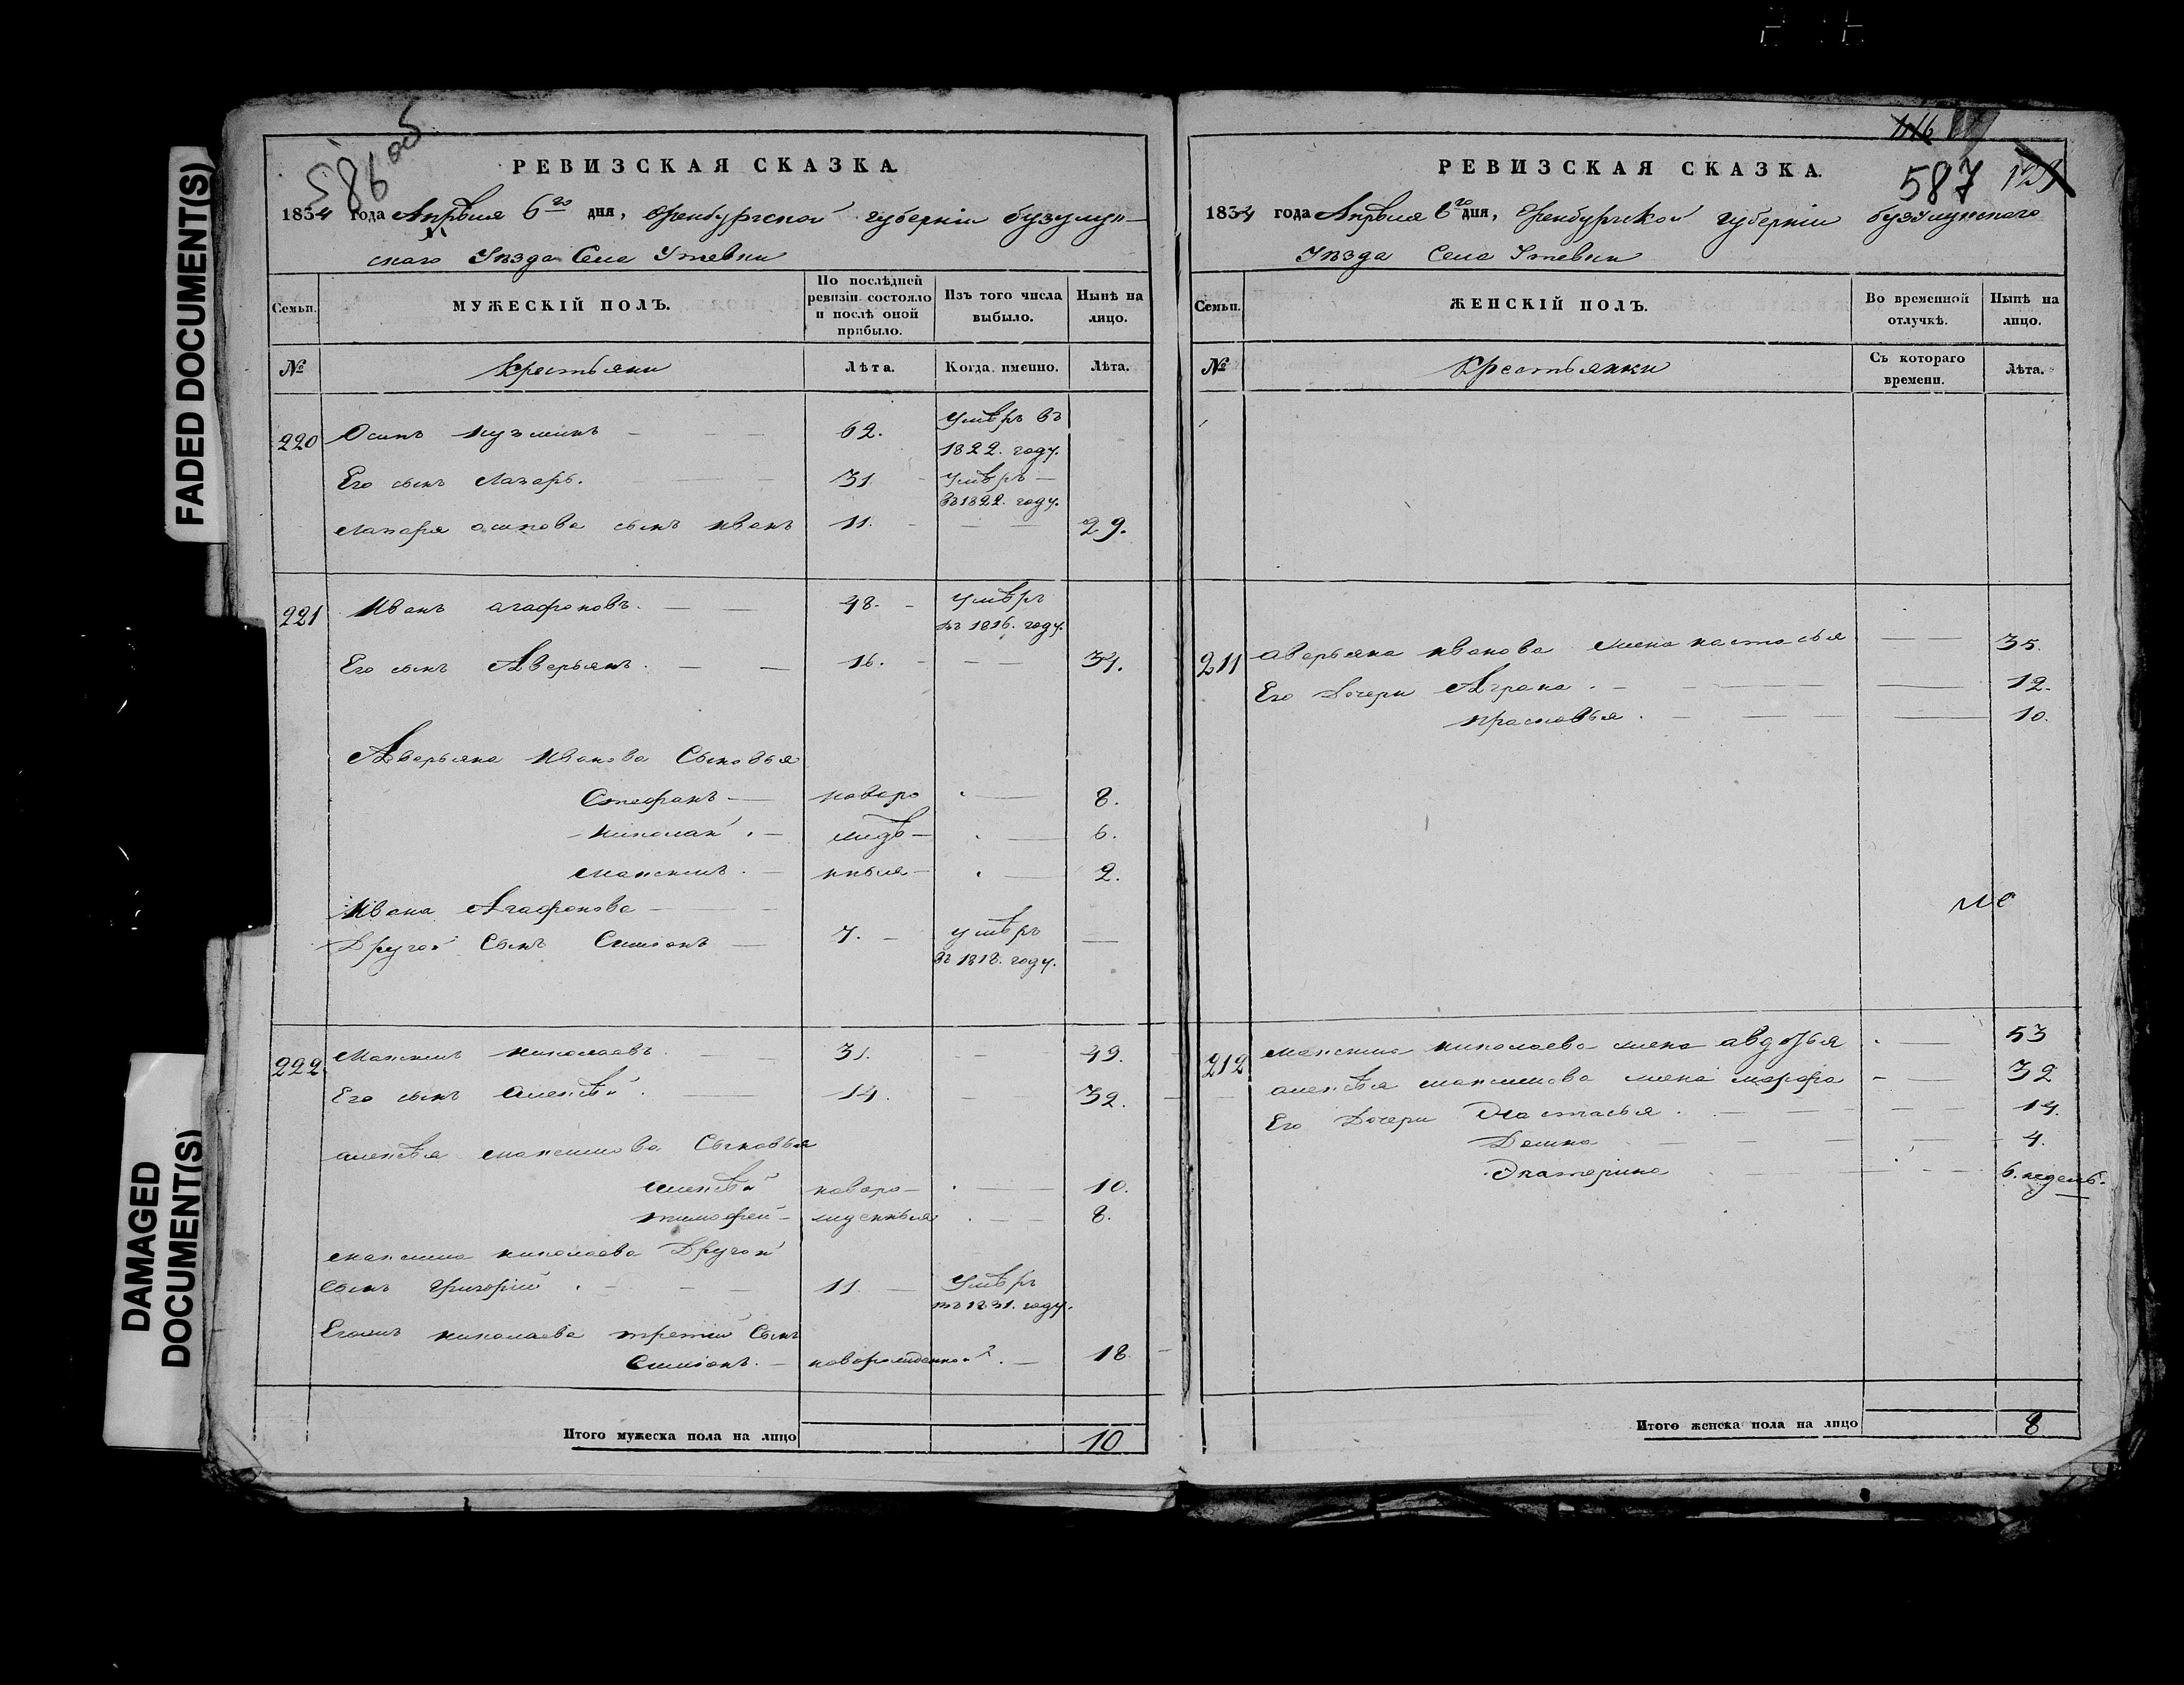 FADED DOCUMENT(S)
DAMAGED
DOCUMENT(S)
586 об
РЕВИЗСКАЯ СКАЗКА.
1834 года Апрѣля 6го дня, Оренбургской губерніи бузулук-
скаго Уѣзда Села Утевки
Семьи.
МУЖЕСКІЙ ПОЛЪ.
По послѣдней
ревизіи состояло
и послѣ оной
прибыло.
Изъ того числа
выбыло.
Нынѣ на
лицо.
№
Крестьяни
Лѣта.
Когда именно.
Лѣта.
220 Осипъ кузминъ — 62. Умѣръ въ
1822. году.
Его сынъ Лазарь. 31 Умѣръ —
въ 1822. году.
Лазаря осипова сынъ иванъ 11. — 29.
221 Иванъ агафоновъ. — 48. — Умѣръ
въ 1816. году.
Его сынъ Аверьянъ. — 16. — 34.
Аверьяна Иванова Сыновья
Стефанъ — новоро 8.
николай . — ждѣ — 6.
максимъ . — нныя — 2.
Ивана Агафонова —
Другой Сынъ Симионъ — 7. — умѣръ —
въ 1818. году.
222 Максимъ николаевъ. 31. 49.
Его сынъ алексѣй . 14. 32.
алексѣя максимова Сыновья
алексѣй новоро — 10.
тимофей — жденныя 8.
максима николаева Другой
сынъ григорій . 11 Умѣръ
въ 1831. году.
николаева третій Сынъ
Симионъ. — новорожденной . — 18
Итого мужеска пола на лицо 10
116
587
123
РЕВИЗСКАЯ СКАЗКА.
1834 года Апрѣля 6го дня, Оренбургской губерніи бузулукскаго
Уѣзда Села Утевки
Семьи.
ЖЕНСКІЙ ПОЛЪ.
Во временной
отлучкѣ.
Нынѣ на
лицо.
№
Крестьянки
Съ котораго
времени.
Лѣта.
211 аверьяна иванова жена настасья — 35.
Его Дочери Аграпа . — 12.
прасковья . — 10.
212 максима николаева жена авдотья . — 53
алексѣя максимова жена марфа — 32
Его Дочери Анастасья . — 14.
Домна — 4.
Екатерина — 6. недель.
Итого женска пола на лицо 8